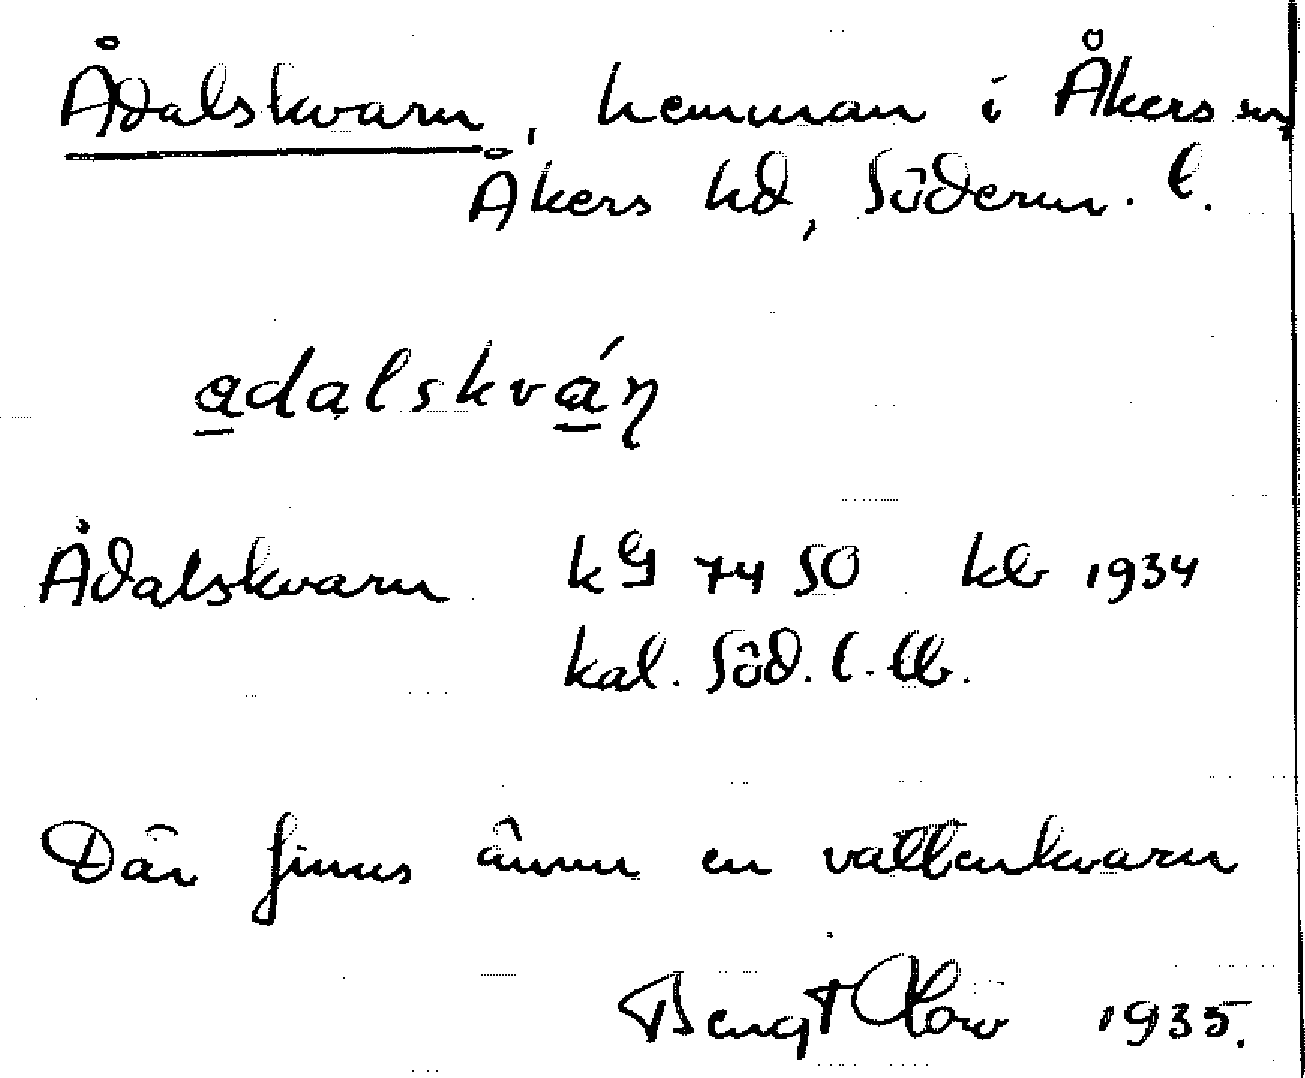 Ådalskvarn, hemman i Åkers sn,
Åkers hd, Söderm. l.
ådalskván
Ådalskvarn kg 7450 kb 1934
kal. Söd. l. lb.
Där finns ännu en vattenkvarn
Bengt 1935.